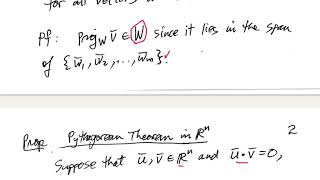 for all vectors
Pf: Proj_W v̄ ∈ W since it lies in the span
of {w̄₁, w̄₂, ..., w̄ₘ}. ✓
Prop. Pythagorean Theorem in ℝⁿ 2
Suppose that ū, v̄ ∈ ℝⁿ and ū • v̄ = 0,